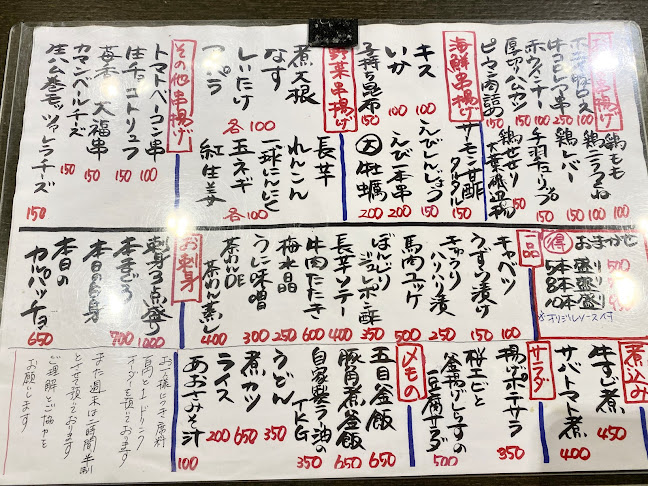 鶏もも 100
鶏こつくね 100
鶏レバー 100
手羽チューリップ 150
鶏せせり 150
厚切りハムカツ
赤ウィンナー 100
牛コロレア串 250
ピーマン肉詰め 150
海鮮串揚げ
サーモン串酢タルタル
キス 100
いか 100
子持ち昆布 150
えびしんじょう 150
えび一本串 200
大牡蠣 200
野菜串揚げ
煮大根
なす
しいたけ
アスパラ
各100
長芋
れんこん
一球にんにく
玉ネギ
紅生姜
各100
その他串揚げ
トマトベーコン串 100
生チョコトリュフ 150
苺香る大福串 150
カマンベールチーズ 150
生ハム巻モッツァレラチーズ 150
得 おまかせ
5本盛り 500
8本盛り
10本盛り
※オリジナルソース付
一品
キャベツ 100
うずら漬け 150
キャクリハリハリ漬 250
馬肉ユッケ 500
ぼんじりジュレポン酢 350
長芋ソテー 400
牛肉たたき 600
梅水晶 250
うに味噌 300
茶わんDE茶わん蒸し 400
お刺身
刺身3点盛り 1000
本まぐろ 700
本日のお刺身
本日のカルパッチョ 650
煮込み
牛すじ煮 450
サバトマト煮 400
サラダ
揚げポテサラ 350
桜エビと釜揚げしらすの豆腐サラダ 500
〆もの
五目釜飯 650
豚角煮釜飯 650
自家製ラー油のTKG 350
うどん 350
煮カツ 650
ライス 200
あおさみそ汁 100
お客様につき席料
百円と1ドリンク
オーダーを頂いております
また週末は二時間半制
とさせて頂いております
ご理解とご協力を
お願いします